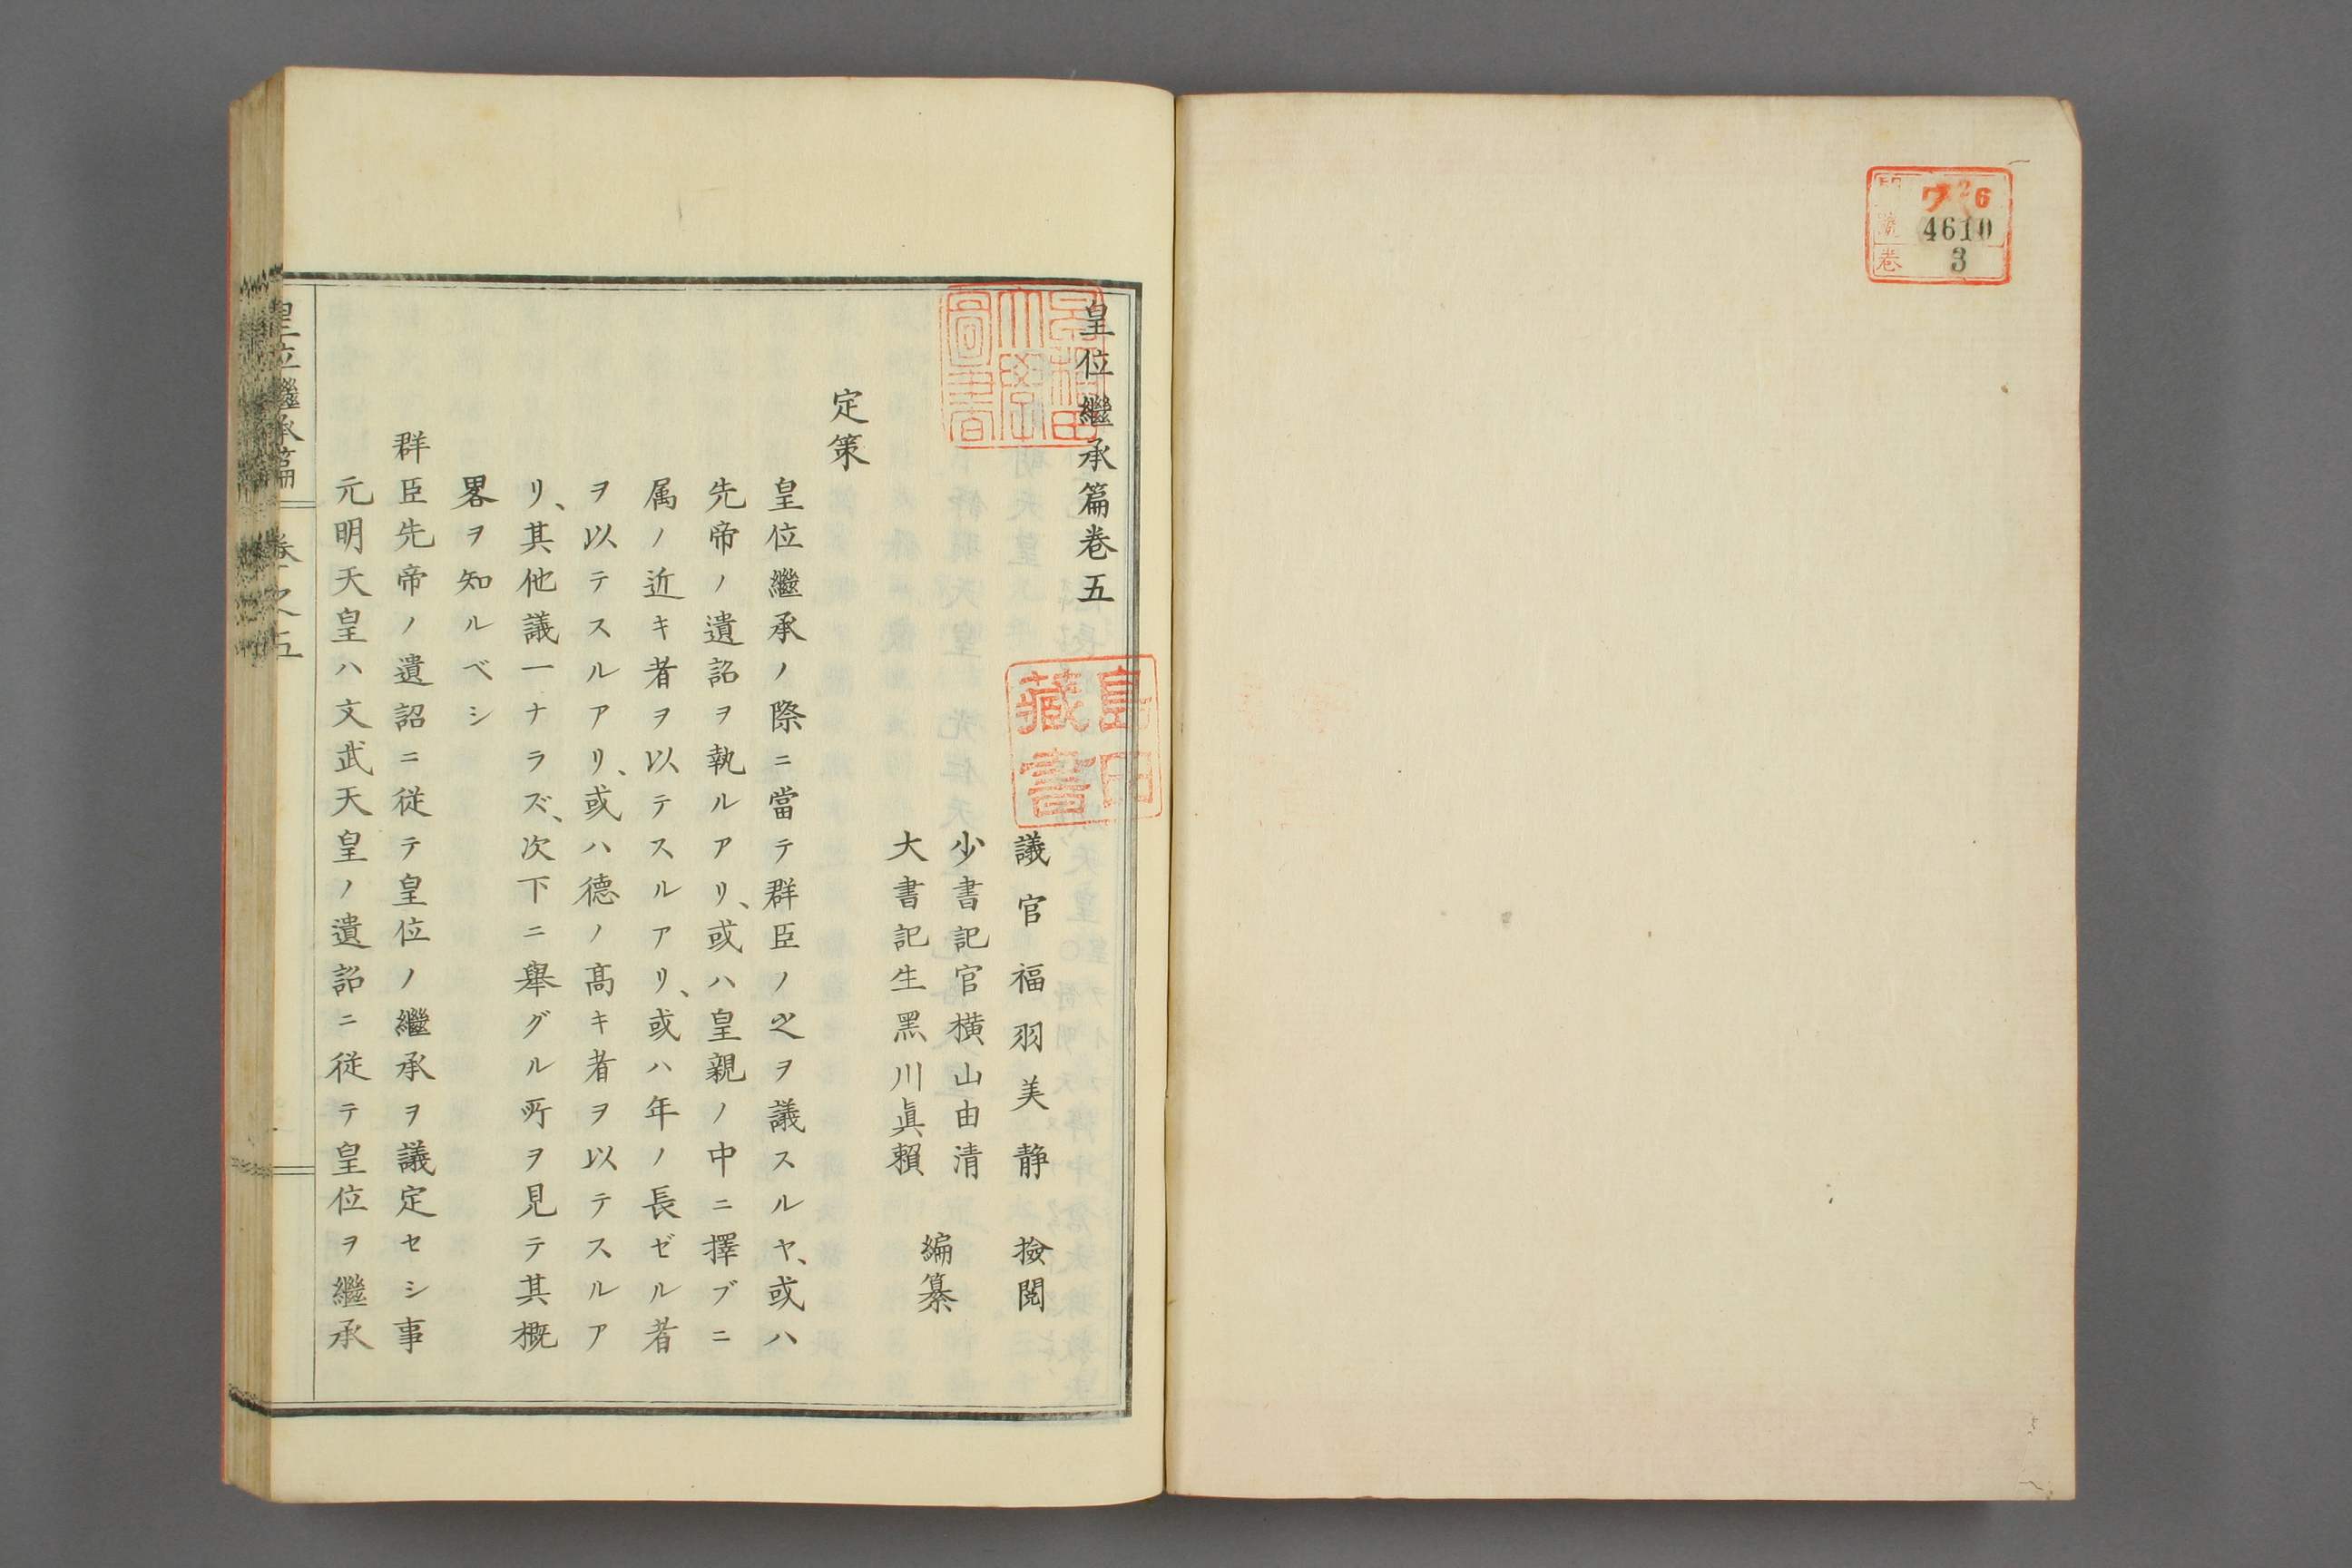 ワ 26
4610
3
卷
皇位繼承篇卷五
島田
藏書
議官福羽美静 撿閲
少書記官横山由清
大書記生黒川眞頼
編纂
定策
皇位繼承ノ際ニ當テ群臣ノ之ヲ議スルヤ、或ハ
先帝ノ遺詔ヲ執ルアリ、或ハ皇親ノ中ニ擇ブニ
属ノ近キ者ヲ以テスルアリ、或ハ年ノ長ゼル者
ヲ以テスルアリ、或ハ德ノ髙キ者ヲ以テスルア
リ、其他議一ナラズ、次下ニ舉グル所ヲ見テ其概
畧ヲ知ルベシ
群臣先帝ノ遺詔ニ従テ皇位ノ繼承ヲ議定セシ事
元明天皇ハ文武天皇ノ遺詔ニ従テ皇位ヲ繼承
皇位繼承篇 卷之五